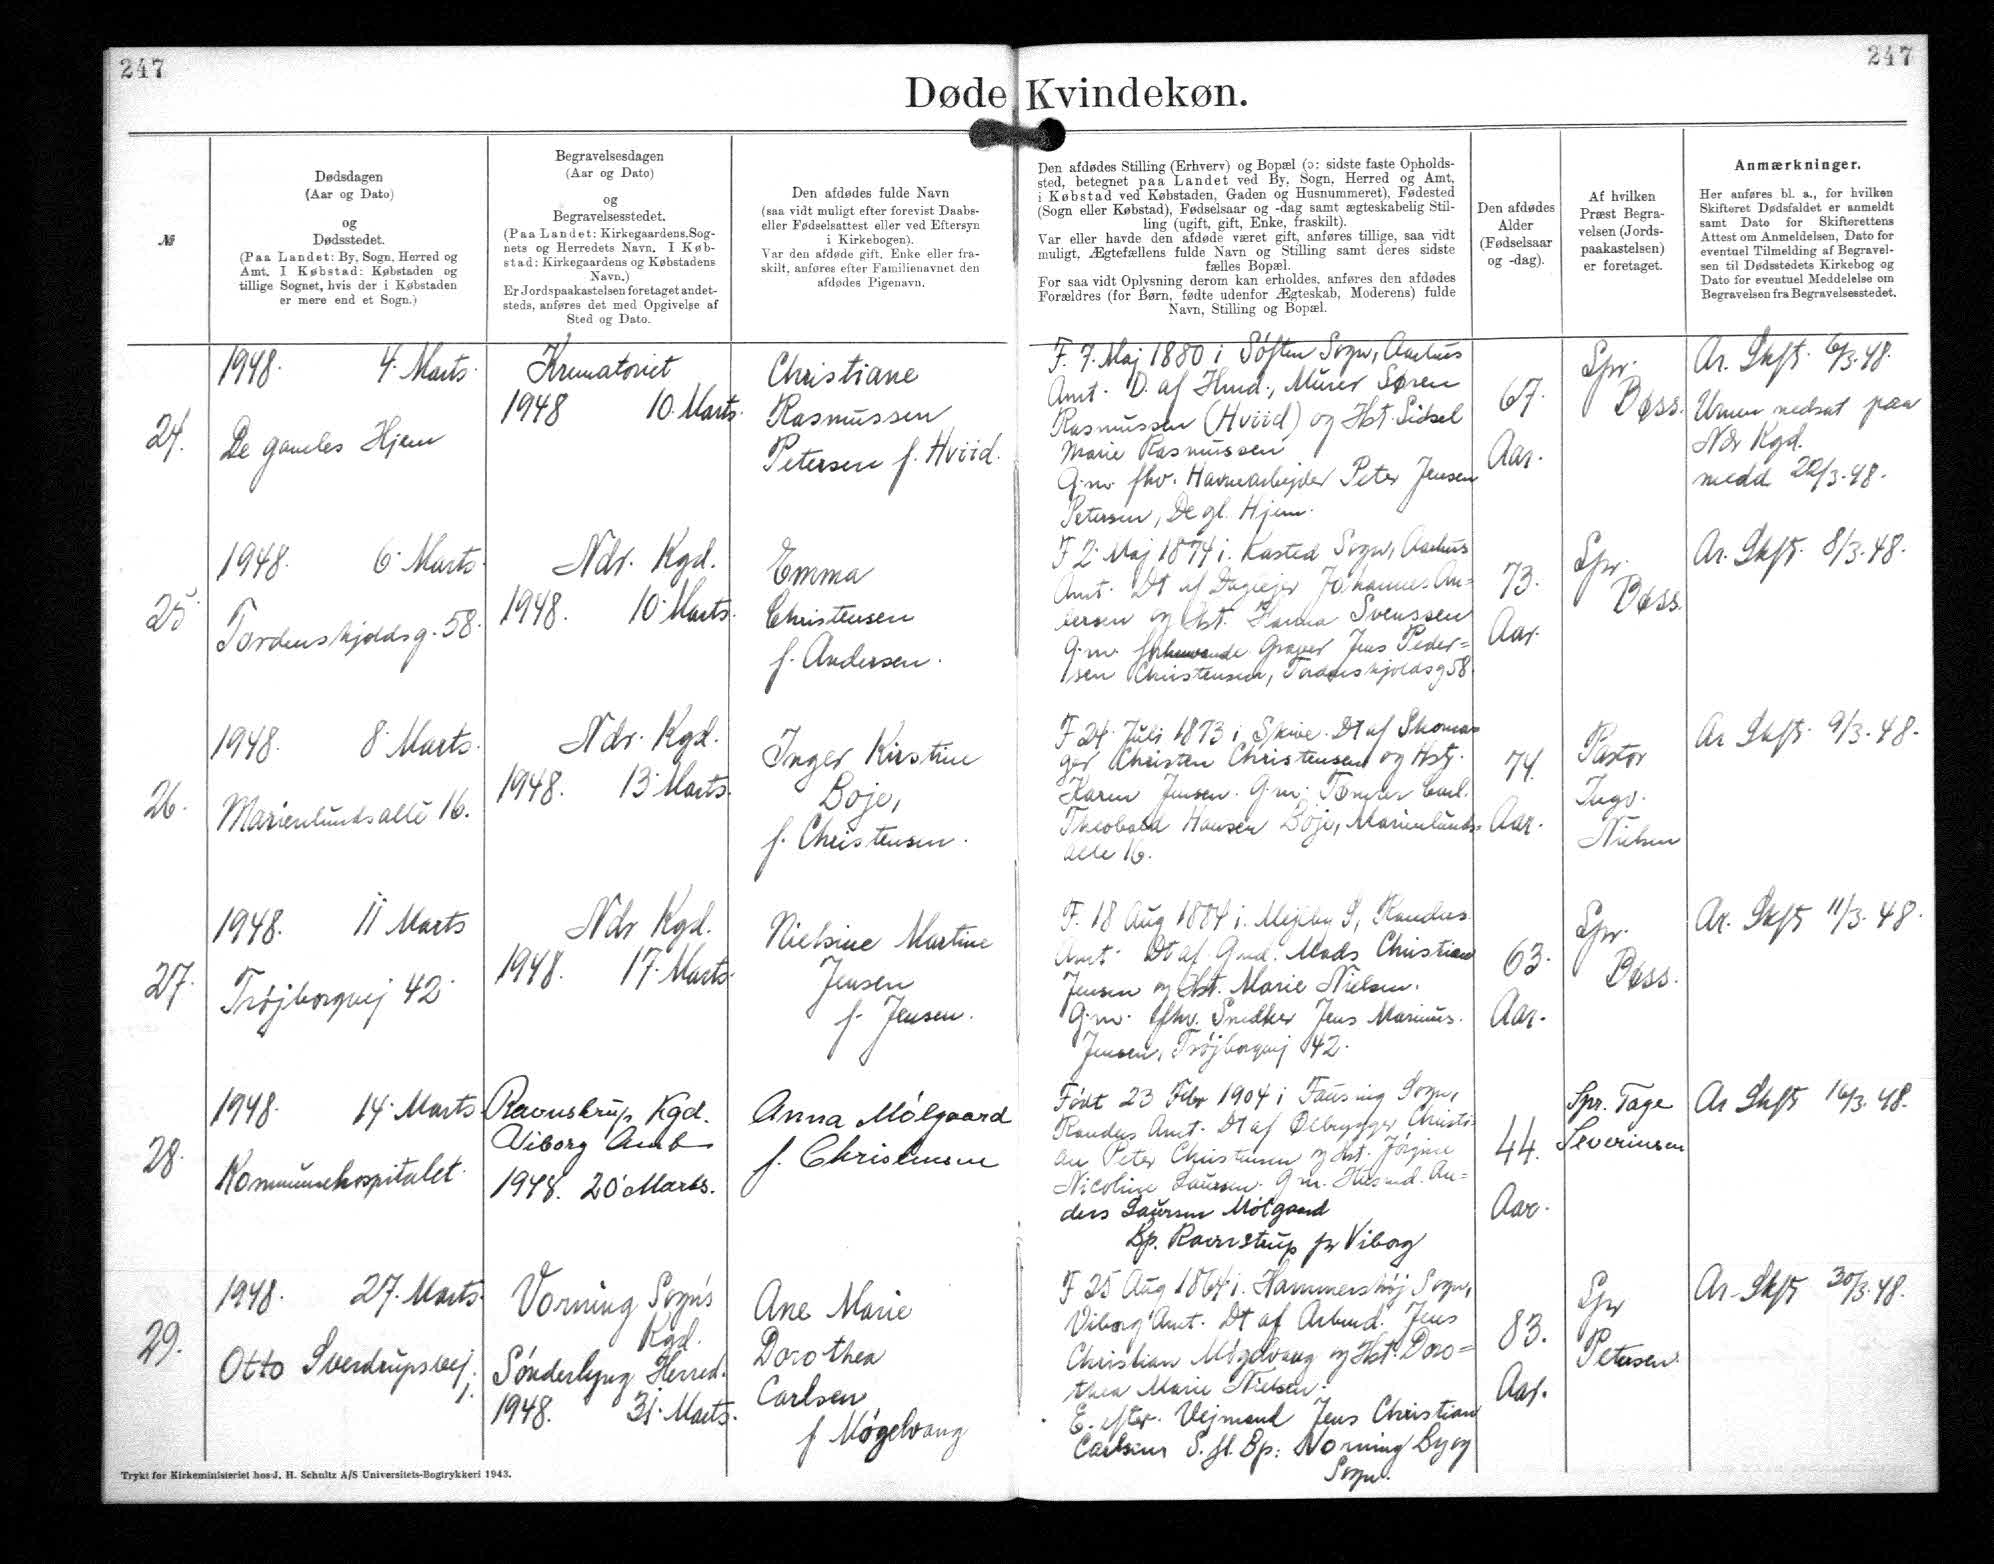 247
247
Døde Kvindekøn.
№
Dødsdagen
(Aar og Dato)
og
Dødsstedet.
(Paa Landet: By, Sogn, Herred og
Amt. I Købstad: Købstaden og
tillige Sognet, hvis der i Købstaden
er mere end et Sogn.)
Begravelsesdagen
(Aar og Dato)
og
Begravelsesstedet.
(Paa Landet: Kirkegaardens, Sog-
nets og Herredets Navn. I Køb-
stad: Kirkegaardens og Købstadens
Navn.)
Er Jordspaakastelsen foretaget andet-
steds, anføres det med Opgivelse af
Sted og Dato.
Den afdødes fulde Navn
(saa vidt muligt efter forevist Daabs-
eller Fødselsattest eller ved Eftersyn
i Kirkebogen).
Var den afdøde gift, Enke eller fra-
skilt, anføres efter Familienavnet den
afdødes Pigenavn.
Den afdødes Stilling (Erhverv) og Bopæl (ɔ: sidste faste Opholds-
sted, betegnet paa Landet ved By, Sogn, Herred og Amt,
i Købstad ved Købstaden, Gaden og Husnummeret), Fødested
(Sogn eller Købstad), Fødselsaar og -dag samt ægteskabelig Stil-
ling (ugift, gift, Enke, fraskilt).
Var eller havde den afdøde været gift, anføres tillige, saa vidt
muligt, Ægtefællens fulde Navn og Stilling samt deres sidste
fælles Bopæl.
For saa vidt Oplysning derom kan erholdes, anføres den afdødes
Forældres (for Børn, fødte udenfor Ægteskab, Moderens) fulde
Navn, Stilling og Bopæl.
Den afdødes
Alder
(Fødselsaar
og -dag).
Af hvilken
Præst Begra-
velsen (Jords-
paakastelsen)
er foretaget.
Anmærkninger.
Her anføres bl. a., for hvilken
Skifteret Dødsfaldet er anmeldt
samt Dato for Skifterettens
Attest om Anmeldelsen, Dato for
eventuel Tilmelding af Begravel-
sen til Dødsstedets Kirkebog og
Dato for eventuel Meddelelse om
Begravelsen fra Begravelsesstedet.
24.
1948. 4. Marts.
De gamles Hjem
Krematoriet
1948 10. Marts.
Christiane
Rasmussen
Petersen f. Hviid.
F. 7. Maj 1880 i Søften Sogn, Aarhus
Amt. D. af Hmd., Murer Søren
Rasmussen (Hviid) og Hst. Sidsel
Marie Rasmussen
G.m. fhv. Havnearbejder Peter Jensen
Petersen, De gl. Hjem.
67.
Aar.
Spr.
Bøss.
Ar. Skft. 6/3.48.
Urnen nedsat paa
Ndr Kgd.
medd 22/3.48.
25
1948. 6. Marts.
Tordenskjoldsg. 58.
Ndr. Kgd.
1948. 10. Marts.
Emma
Christensen
f. Andersen.
F 2. Maj 1874 i. Kasted Sogn, Aarhus
Amt. Dt af Daglejer Johannes An=
dersen og Hst. Hanna Svenssen
G.m. forhenværende Graver Jens Peder=
sen Christensen, Tordenskjoldsg 58.
73.
Aar.
Spr.
Bøss.
Ar. Skft. 8/3.48.
26.
1948. 8. Marts.
Marienlundsallé 16.
Ndr. Kgd.
1948. 13. Marts.
Inger Kirstine
Boje,
f. Christensen.
F 24. Juli 1873 i Skive. Dt af Skoma=
ger Christen Christensen og Hst.
Karen Jensen. G.m. Tømrer Carl
Theobald Hansen Boje, Marienlunds=
alle 16.
74.
Aar.
Pastor
Ingv.
Nielsen
Ar Skft. 9/3.48.
27.
1948. 11 Marts
Trøjborgvej 42.
Ndr Kgd.
1948. 17. Marts.
Nielsine Martine
Jensen
f. Jensen.
F. 18 Aug 1884 i. Mejlby S, Randers
Amt. Dt af. Gmd. Mads Christian
Jensen og Hst. Marie Nielsen.
G.m. fhv. Snedker Jens Marinus
Jensen, Trøjborgvej 42.
63.
Aar.
Spr.
Bøss.
Ar. Skft 11/3.48.
28.
1948. 14. Marts
Kommunehospitalet.
Ravnstrup Kgd.
Viborg Amt
1948. 20. Marts.
Anna Mølgaard
f. Christensen
Født 23 Febr 1904 i Fausing Sogn,
Randers Amt. Dt af Ølbrygger Christi=
an Peter Christensen og Hst. Jørgine
Nicoline Laursen. G m. Husmd. An=
ders Laursen Mølgaard
Bp. Ravnstrup pr Viborg
44.
Aar.
Spr. Tage
Severinsen
Ar Skft 16/3.48.
29.
1948. 27. Marts.
Otto Sverdrupsvej
1.
Vorning Sogns
Kgd.
Sønderlyng Herred.
1948. 31. Marts.
Ane Marie
Dorothea
Carlsen
f Møgelvang
F 25 Aug 1864 i. Hammershøj Sogn,
Viborg Amt. Dt af Arbmd. Jens
Christian Møgelvang og Hst. Doro=
thea Marie Nielsen.
E. efter. Vejmand Jens Christian
Carlsen S. fl. Bp: Vorning By og
Sogn.
83.
Aar.
Spr
Petersen.
Ar. Skft 30/3.48.
Trykt for Kirkeministeriet hos J. H. Schultz A/S Universitets-Bogtrykkeri 1943.